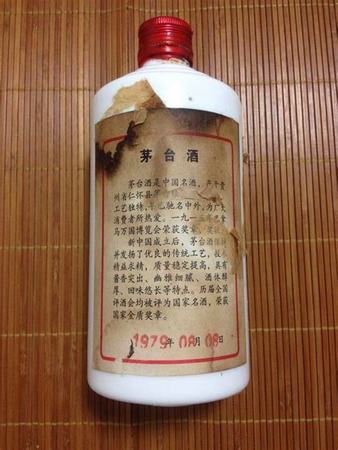 茅台酒
茅台酒是中国名酒，产于贵
州省仁怀县茅台镇
工艺独特，早已驰名中外，为广大
消费者所热爱。一九一五年巴拿
马万国博览会荣获奖章、奖状
新中国成立后，茅台酒保持
并发扬了优良的传统工艺，技术
精益求精，质量稳定提高，具有
酱香突出、幽雅细腻、酒体醇
厚、回味悠长等特点。历届全国
评酒会均被评为国家名酒，荣获
国家金质奖章。
1979年08月08日